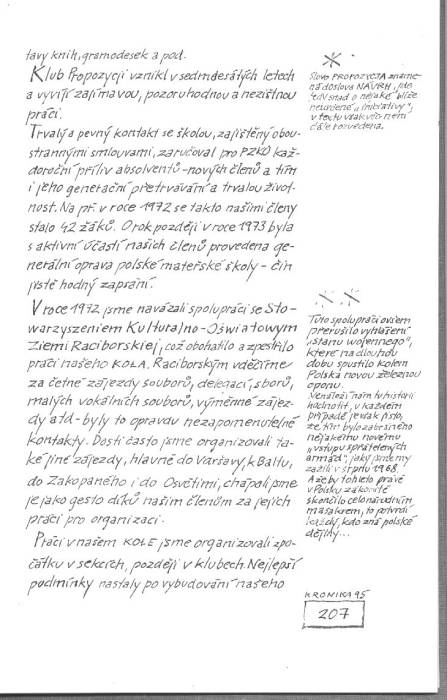 tavy knih, gramodesek a pod.
Klub Propozycji vznikl v sedmdesátých letech
a vyvíjí zajímavou, pozoruhodnou a nezištnou
práci.
Trvalý a pevný kontakt se školou, zajištěný obou-
strannými smlouvami, zaručoval pro PZKO kaž-
doroční příliv absolventů-nových členů a tím
i jeho generační přetrvávání a trvalou život-
nost. Na př. v roce 1972 se takto našimi členy
stalo 42 žáků. O rok později v roce 1973 byla
s aktivní účastí našich členů provedena ge-
nerální oprava polské mateřské školy - čin
jistě hodný zapsání.
V roce 1972 jsme navázali spolupráci se Sto-
warzyszeniem Kulturalno-Oświatowym
Ziemi Raciborskiej, což obohatilo a zpestřilo
práci našeho KOLA. Raciborským vděčíme
za četné zájezdy souborů, delegací, sborů,
malých vokálních souborů, výměnné zájez-
dy atd - byly to opravdu nezapomenutelné
kontakty. Dosti často jsme organizovali ta-
ké jiné zájezdy, hlavně do Varšavy, k Baltu,
do Zakopaného i do Osvětimi, chápali jsme
je jako gesto díků našim členům za jejich
práci pro organizaci.
Práci v našem KOLE jsme organizovali zpo-
čátku v sekcích, později v klubech. Nejlepší
podmínky nastaly po vybudování našeho
Slovo PROPOZYCJA zname-
ná doslova NÁVRH, jde
tedy snad o nějaké blíže
neurčené „iniciativy",
v textu však víc není
dále rozvedena.
Tuto spolupráci ovšem
přerušilo vyhlášení
„stanu wojennego",
které na dlouhou
dobu spustilo kolem
Polska novou železnou
oponu.
Nenáleží nám tu historii
hodnotit, v každém
případě je však jisto,
že tím bylo zabráněno
nějakému novému
„vstupu spřátelených
armád", jaký jsme my
zažili v srpnu 1968.
A že by tohleto právě
v Polsku zákonitě
skončilo celonárodním
masakrem, to potvrdí
každý, kdo zná polské
dějiny...
KRONIKA 95
207